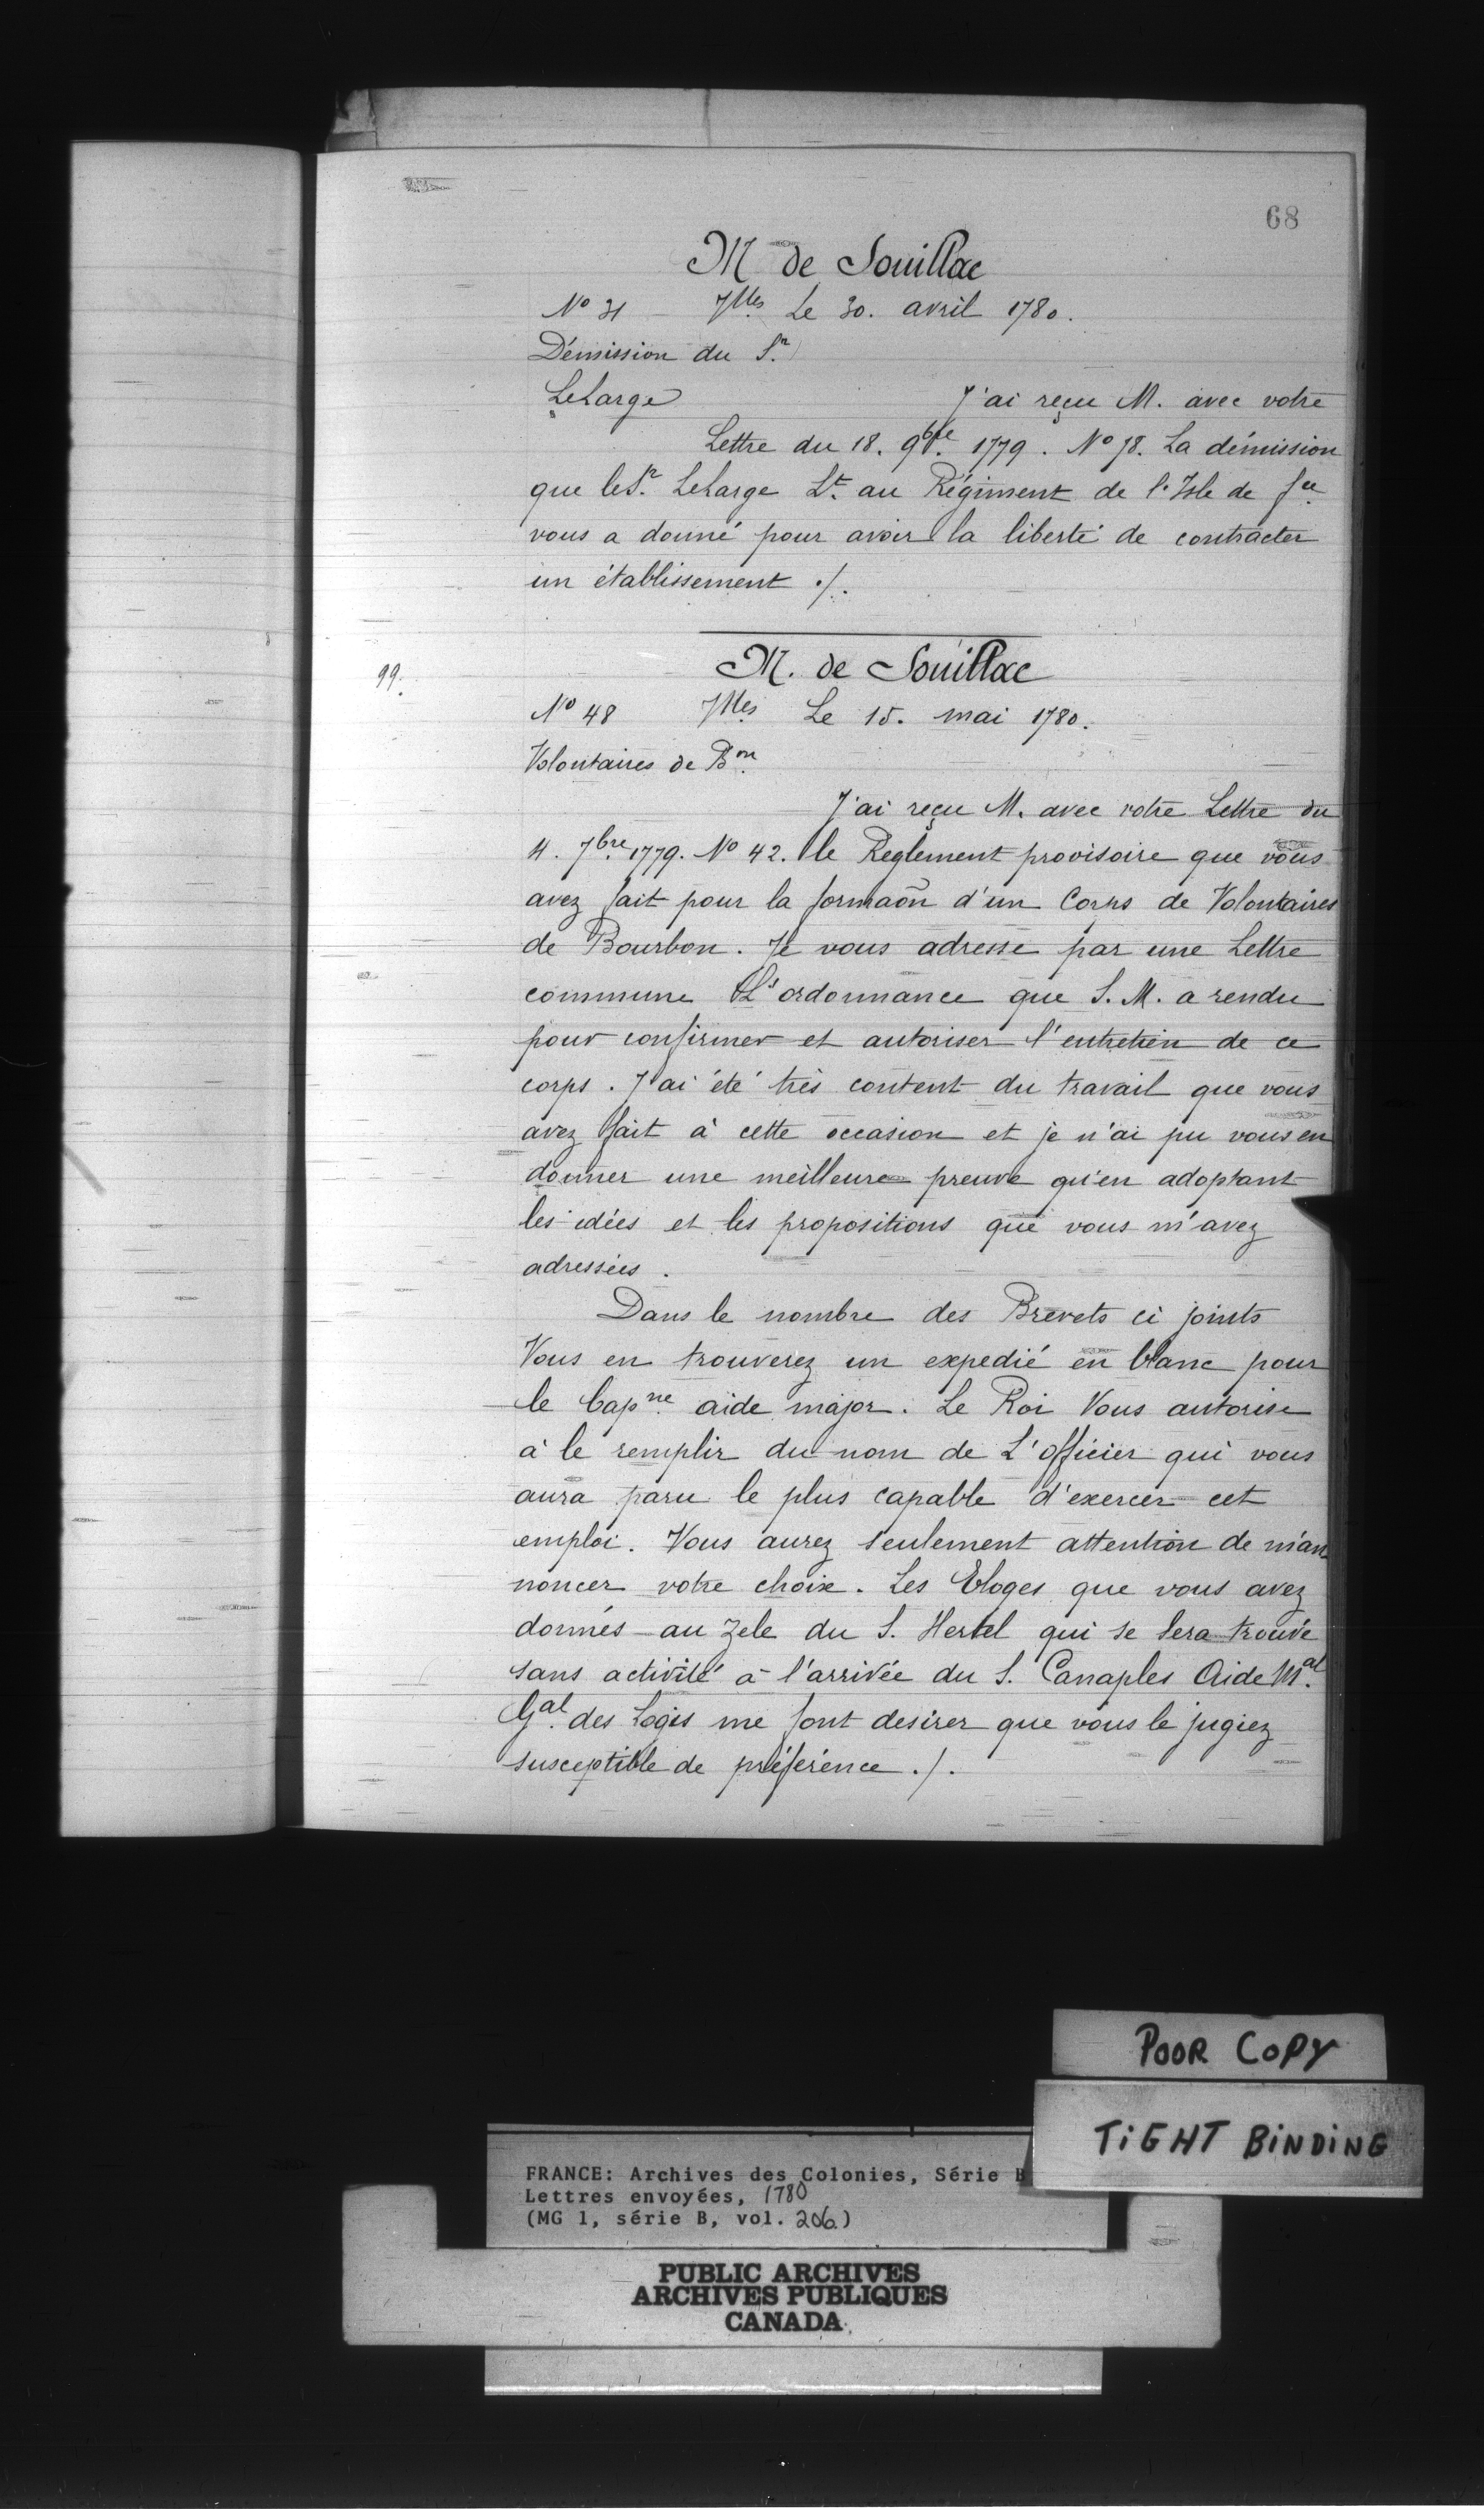 68
M de Souillac
No 31 Vlles Le 30. avril 1780.
Démission du Sr.
LeLarge
J'ai reçu M. avec votre
Lettre du 18. 9bre. 1779. No 78. La démission
que le Sr. LeLarge Lt. au Régiment de l'Isle de fce
vous a donné pour avoir la liberté de contracter
un établissement ./.
99.
M. de Souillac
No 48 Vlles Le 15. mai 1780.
Volontaires de Bon.
J'ai reçu M. avec votre Lettre du
4. 7bre. 1779. No 42. le Reglement provisoire que vous
avez fait pour la formaõn d'un Corps de Volontaires
de Bourbon. Je vous adresse par une Lettre
commune L'ordonnance que S. M. a rendu
pour confirmer et autoriser l'entretien de ce
corps. J'ai été très content du travail que vous
avez fait à cette occasion et je n'ai pu vous en
donner une meilleure preuve qu'en adoptant
les idées et les propositions que vous m'avez
adressées.
Dans le nombre des Brevets ci joints
Vous en trouverez un expedié en blanc pour
le Capne. aide major. Le Roi Vous autorise
à le remplir du nom de L'officier qui vous
aura paru le plus capable d'exercer cet
emploi. Vous aurez seulement attention de m'an
noncer votre choix. Les Eloges que vous avez
donnés au Zele du S. Hertel qui se sera trouvé
sans activité à l'arrivée du S. Canaples Aide Mal.
Gal. des Logis me font desirer que vous le jugiez
susceptible de préférence ./.
POOR COPY
TiGHT BiNDiNG
FRANCE: Archives des Colonies, Série B
Lettres envoyées, 1780
(MG 1, série B, vol. 206)
PUBLIC ARCHIVES
ARCHIVES PUBLIQUES
CANADA